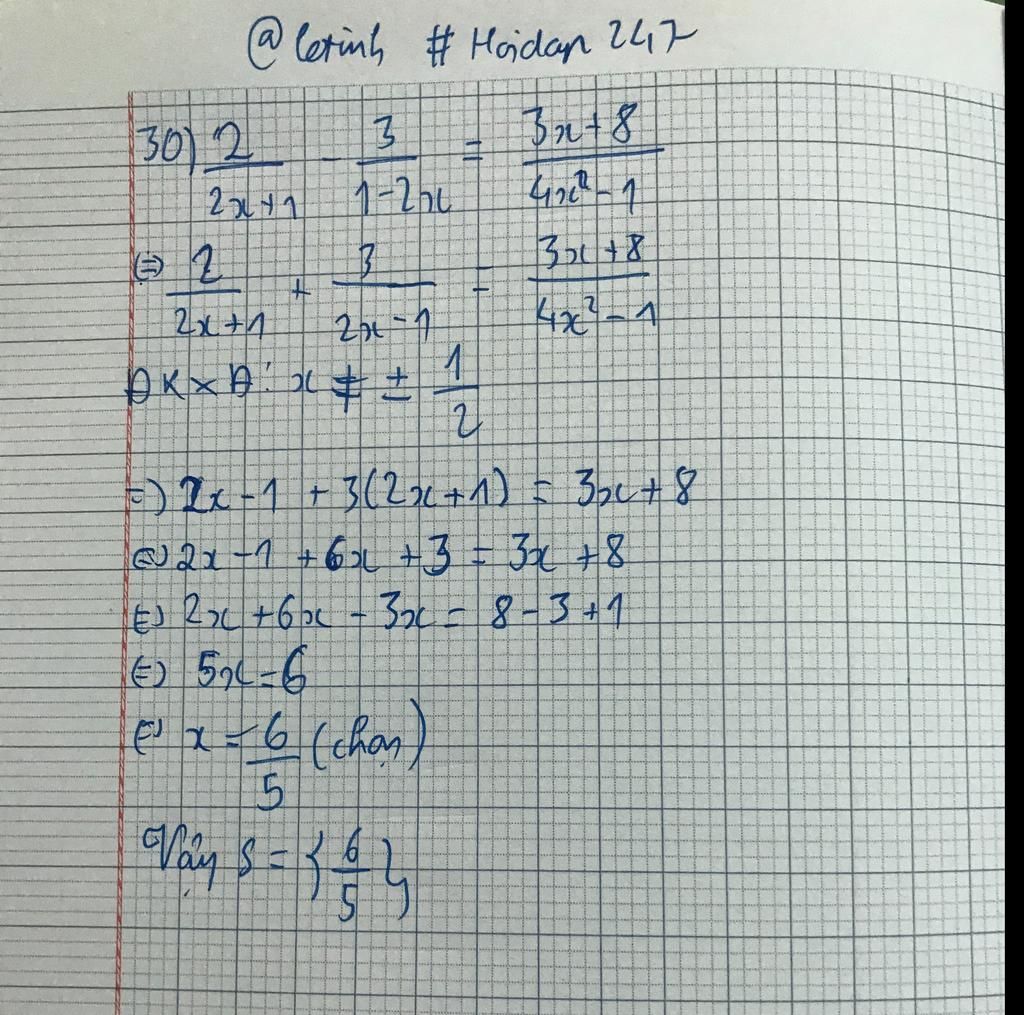 @letinh # Hoidap 247
30) 2/(2x+1) - 3/(1-2x) = (3x+8)/(4x²-1)
⇔ 2/(2x+1) + 3/(2x-1) = (3x+8)/(4x²-1)
ĐKXĐ: x ≠ ± 1/2
⇒ 2x-1 + 3(2x+1) = 3x+8
⇔ 2x-1 +6x +3 = 3x +8
⇔ 2x +6x - 3x = 8-3+1
⇔ 5x=6
⇔ x = 6/5 (chọn)
Vậy S = {6/5}